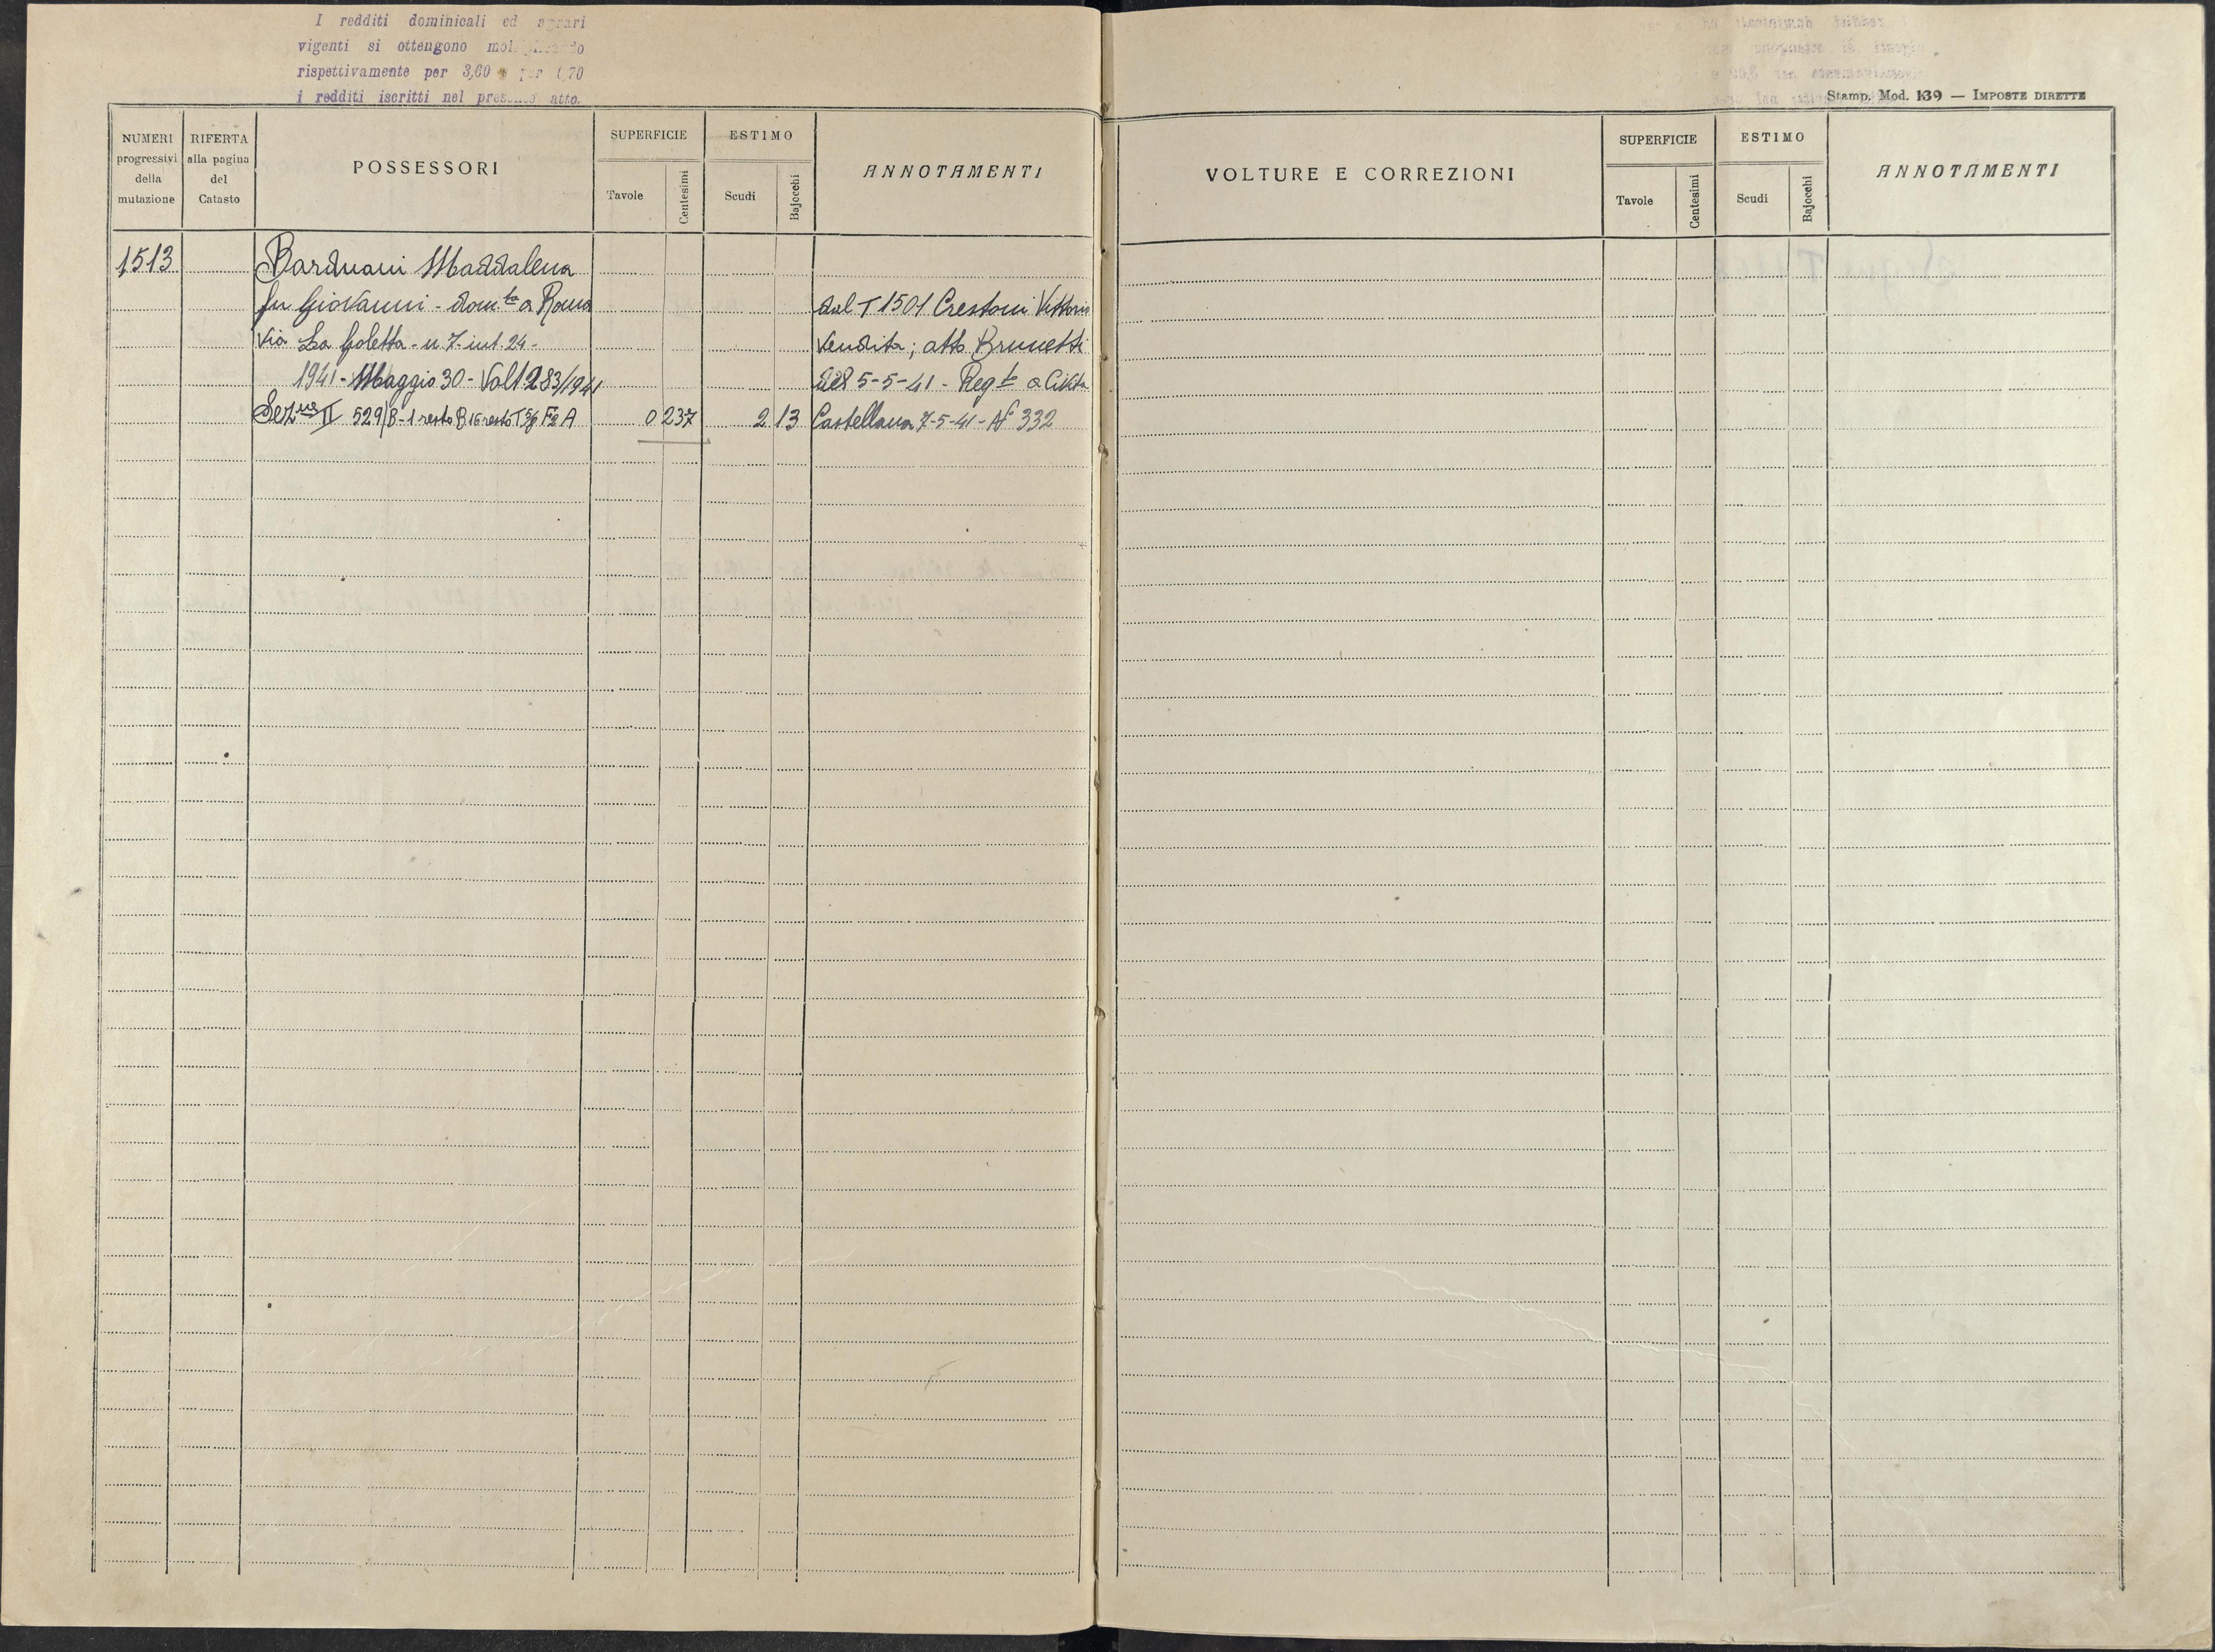 I redditi dominicali ed agrari
vigenti si ottengono
rispettivamente per 3,60 per 0,70
i redditi iscritti nel presente atto.
Stamp. Mod. 139 — IMPOSTE DIRETTE
NUMERI progressivi della mutazione
RIFERTA alla pagina del Catasto
POSSESSORI
SUPERFICIE
Tavole
Centesimi
ESTIMO
Scudi
Bajocchi
ANNOTAMENTI
VOLTURE E CORREZIONI
SUPERFICIE
Tavole
Centesimi
ESTIMO
Scudi
Bajocchi
ANNOTAMENTI
1513 Barduani Maddalena
fu Giovanni - dom.ta a Roma dal T 1501 Crestoni Vittorio
Via La Goletta - n 7 int. 24 - Vendita; atto Brunetti
1941 - Maggio 30 - Vol 1283/941 del 5-5-41 - Reg to a Civita
Sez.ne II 529/B-1 resto B 16 resto T 2 13 Castellana 7-5-41 - N° 332
0 237